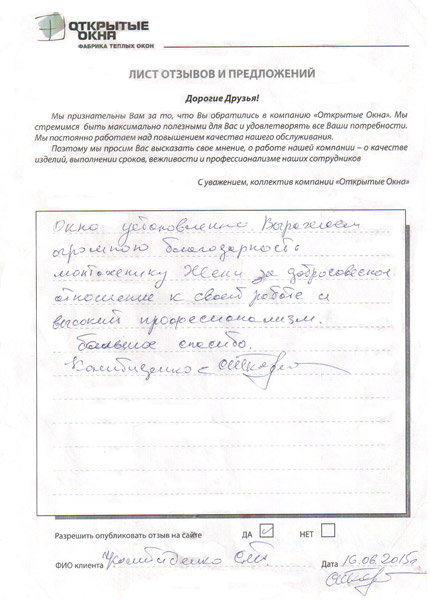 ОТКРЫТЫЕ
ОКНА
ФАБРИКА ТЕПЛЫХ ОКОН
ЛИСТ ОТЗЫВОВ И ПРЕДЛОЖЕНИЙ
Дорогие Друзья!
Мы признательны Вам за то, что Вы обратились в компанию «Открытые Окна». Мы
стремимся быть максимально полезными для Вас и удовлетворять все Ваши потребности.
Мы постоянно работаем над повышением качества нашего обслуживания.
Поэтому мы просим Вас высказать свое мнение, о работе нашей компании – о качестве
изделий, выполнении сроков, вежливости и профессионализме наших сотрудников
С уважением, коллектив компании «Открытые Окна»
Окно установленно. Выражаем
огромною благодарность
монтаженику Жени за добросовесное
отношение к своей работе и
высокий профессионализм.
большое спасибо.
Разрешить опубликовать отзыв на сайте ДА НЕТ
ФИО клиента Дата 16.06.2015г